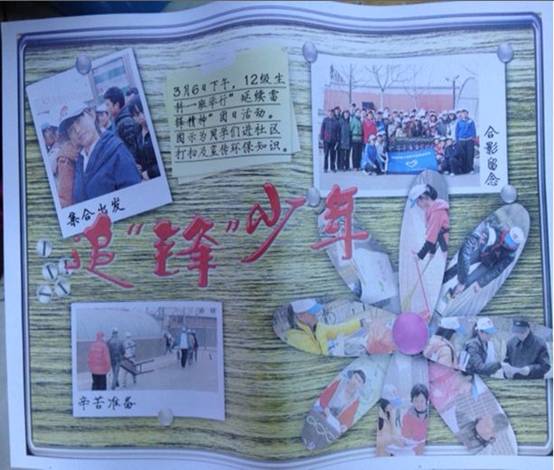 3月6日下午，12级生
科一班举行"延续雷
锋精神"团日活动。
图示为同学们进社区
打扫及宣传环保知识。
合影留念
集合出发
追"锋"少年
辛苦准备